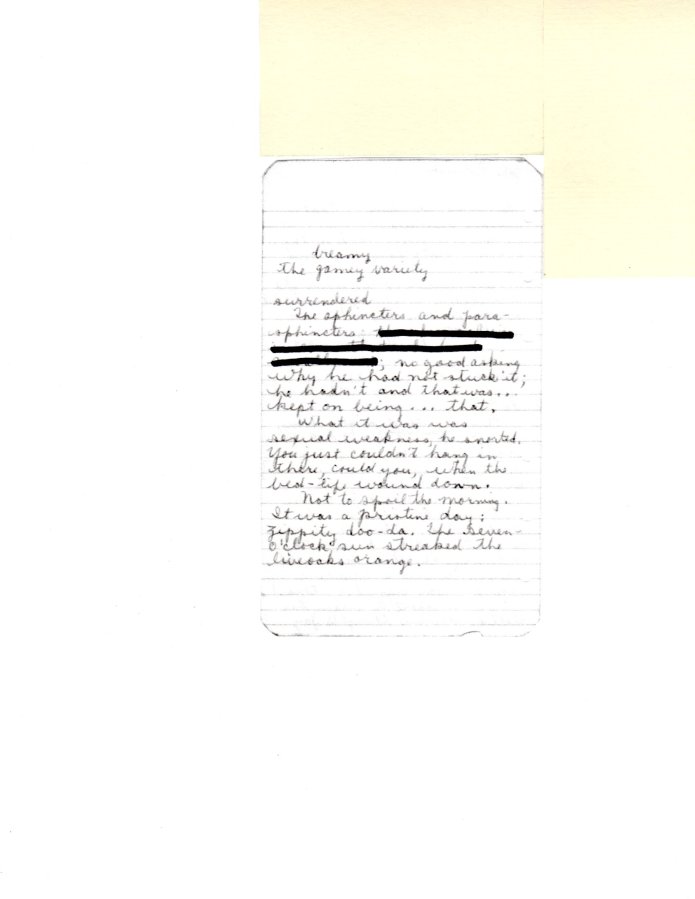 dreamy
the gamey variety
surrendered
The sphincters and para-
sphincters
; no good asking
why he had not stuck it;
he hadn't and that was...
kept on being... that.
What it was was
sexual weakness, he snorted.
You just couldn't hang in
there, could you, when the
bed-tip wound down.
Not to spoil the morning.
It was a pristine day;
zippity doo-da. The seven-
o'clock sun streaked the
liveoaks orange.